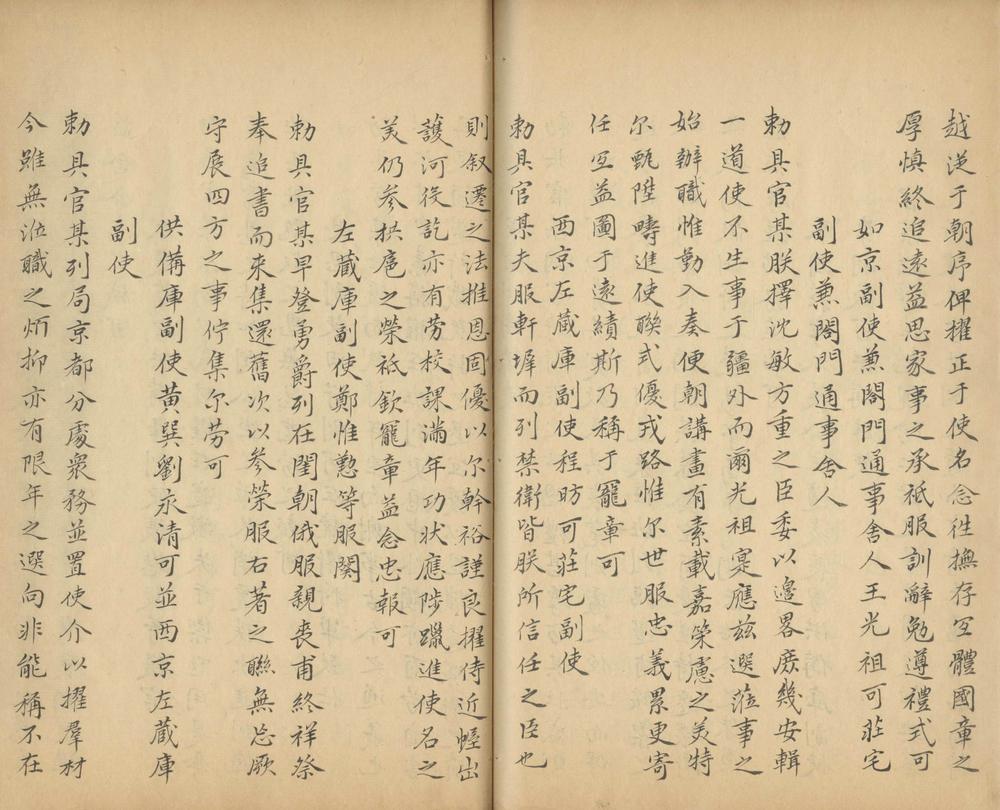 越逆于朝序俾擢正于使名念徃撫存宜體國章之
厚慎終追遠益思家事之承祗服訓辭勉遵禮式可
如京副使兼閤門通事舍人王光祖可莊宅
副使兼閤門通事舍人
勅具官某朕擇沈敏方重之臣委以邊畧庶幾安輯
一道使不生事于疆外而爾光祖寔應兹選蒞事之
始辦職惟勤入奏便朝講畫有素載嘉策慮之美特
尔甄陞疇進使聯式優戎路惟尔世服忠義累更寄
任宜益圖于遠績斯乃稱于寵章可
西京左蔵庫副使程昉可莊宅副使
勅具官某夫服軒墀而列禁衛皆朕所信任之臣也
則叙遷之法推恩固優以尔幹裕謹良擢侍近幄出
護河役訖亦有劳校課滿年功状應陟躐進使名之
美仍参拱扈之榮祗欽寵章益念忠報可
左蔵庫副使鄭惟懃等服闋
勅具官某早登勇爵列在閨朝俄服親丧甫終祥祭
奉追書而來集還舊次以参榮服右著之聯無忘厥
守展四方之事佇集尔劳可
供備庫副使黄巽劉永清可並西京左蔵庫
副使
勅具官某列局京都分處衆務並置使介以擢羣材
今雖無涖職之煩抑亦有限年之選向非能稱不在